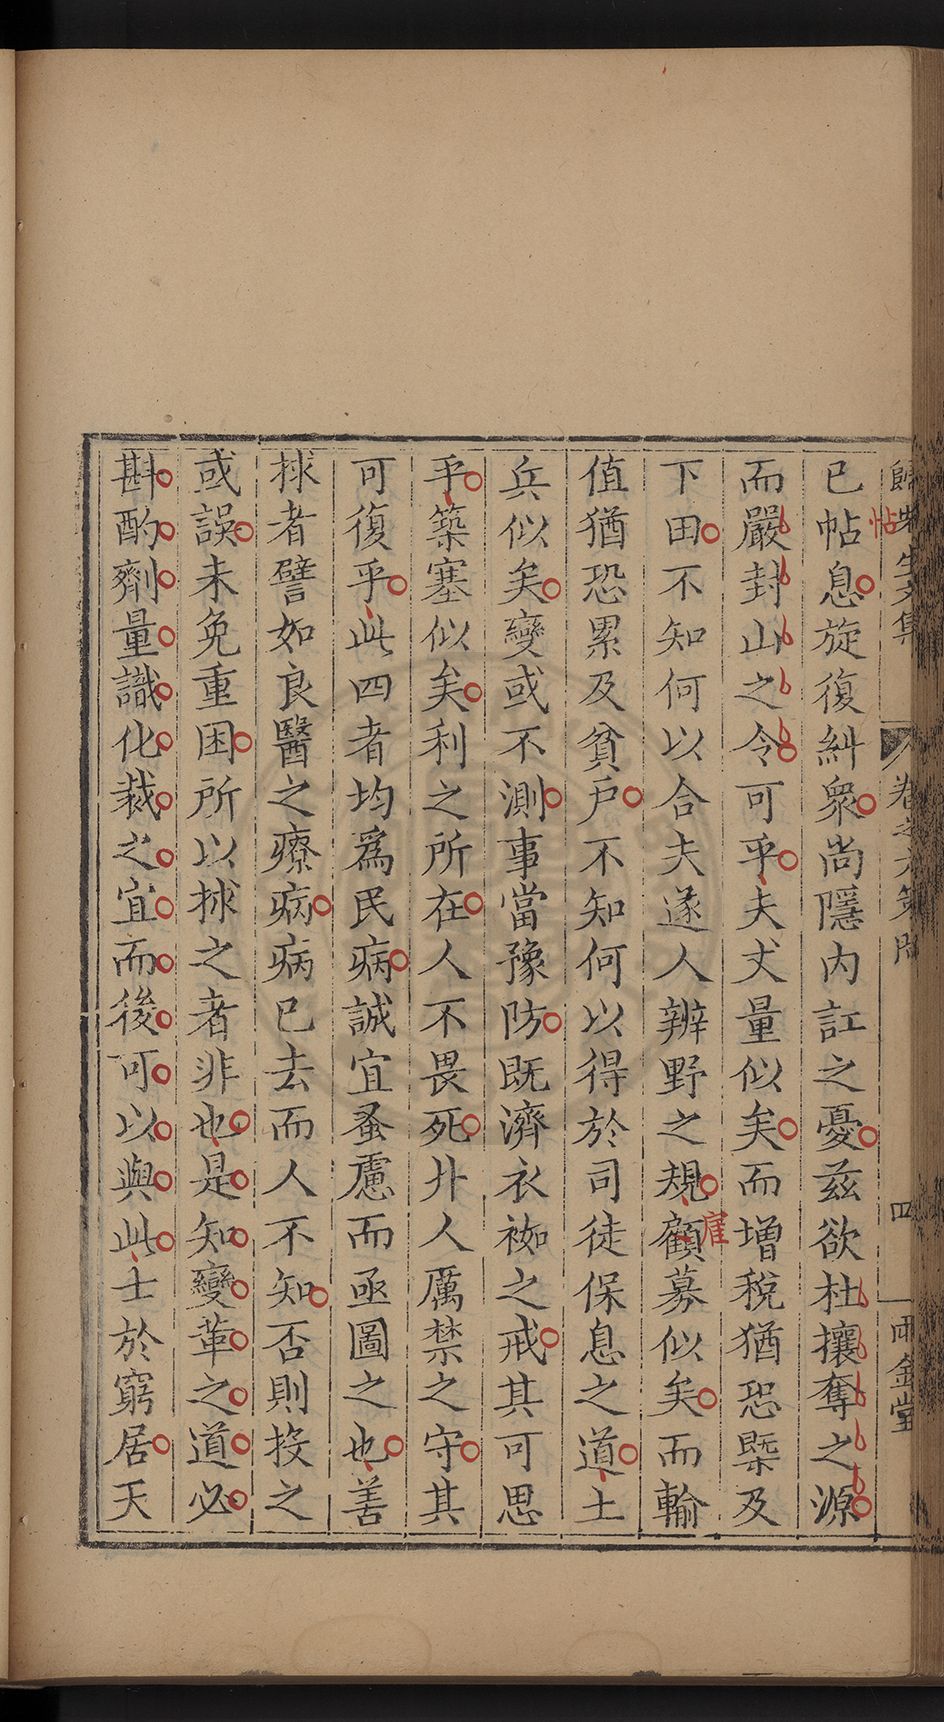 已帖息旋復糾衆尚隱内訌之憂茲欲杜攘奪之源
而嚴封山之令可乎夫丈量似矣而增稅猶恐槩及
下田不知何以合夫遂人辨野之規顧募似矣而輸
值猶恐累及貧戶不知何以得於司徒保息之道土
兵似矣變或不測事當豫防既濟衣袽之戒其可思
乎築塞似矣利之所在人不畏死廾人厲禁之守其
可復乎此四者均爲民病誠宜蚤慮而亟圖之也善
捄者譬如良醫之療病病已去而人不知否則投之
或誤未免重困所以捄之者非也是知變革之道必
斟酌劑量識化裁之宜而後可以與此士於窮居天
卷之六策問
四
雨金堂
帖
雇